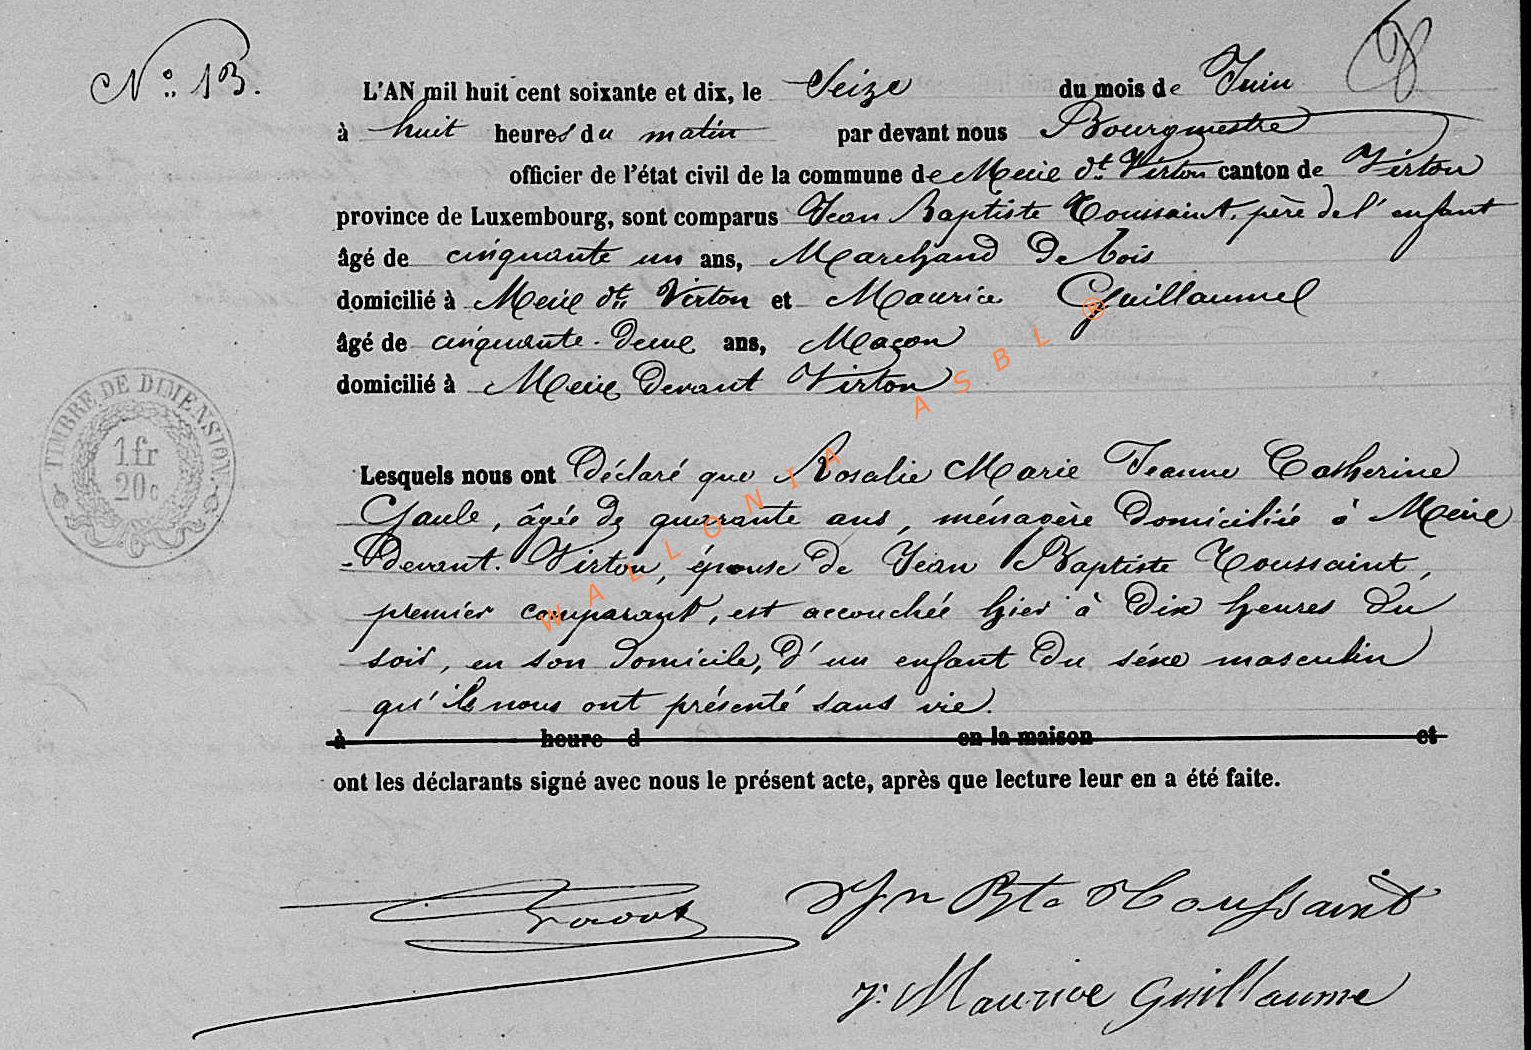 N° 13.
L'AN mil huit cent soixante et dix, le Seize du mois de Juin
à huit heures du matin par devant nous Bourgmestre
officier de l'état civil de la commune de Meix dt. Virton canton de Virton
province de Luxembourg, sont comparus Jean Baptiste Toussaint, père de l'enfant
âgé de cinquante un ans, Marchand de bois
domicilié à Meix dt. Virton et Maurice Guillaumel
âgé de cinquante-deux ans, Maçon
domicilié à Meix devant Virton
TIMBRE DE DIMENSION.
1 fr
20c
Lesquels nous ont déclaré que Rosalie Marie Jeanne Catherine
Gaule, âgée de quarante ans, ménagère domiciliée à Meix
-devant-Virton, épouse de Jean Baptiste Toussaint,
premier comparant, est accouchée hier à dix heures du
soir, en son domicile, d'un enfant du séxe masculin
qu'ils nous ont présenté sans vie.
à heure d en la maison et
ont les déclarants signé avec nous le présent acte, après que lecture leur en a été faite.
Jn Bte Toussaint
j. Maurice Guillaume
WALLONIA ASBL ®